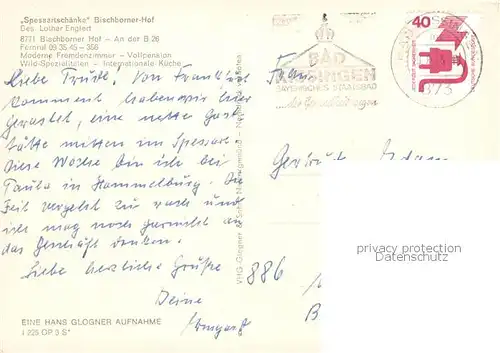 „Spessartschänke" Bischborner-Hof
Bes. Lothar Englert
8771 Bischborner Hof – An der B 26
Fernruf 09 35 45 – 356
Moderne Fremdenzimmer – Vollpension
Wild-Spezialitäten – Internationale Küche
Liebe Trude! Von Frankfurt
kommend haben wir hier
gerastet, eine nette Gast
stätte mitten im Spessart.
Diese Woche bin ich bei
Paula in Hammelburg. Die
Zeit vergeht zu rasch und
ich mag noch garnicht an
das denken.
Liebe herzliche Grüße
Deine
Irmgard
EINE HANS GLOGNER AUFNAHME
I 225 OP 3 S*
VHG Glogner & Sohn
BAD
KISSINGEN
BAYERISCHES STAATSBAD
40
873
Frau
Gertrud Adam
886
privacy protection
Datenschutz